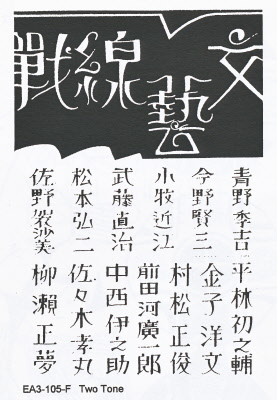 文藝線戰
青野季吉
今野賢三
小牧近江
武藤直治
松本弘二
佐野袈裟美
平林初之輔
金子洋文
村松正俊
前田河廣一郎
中西伊之助
佐々木孝丸
柳瀨正夢
EA3-105-F Two Tone